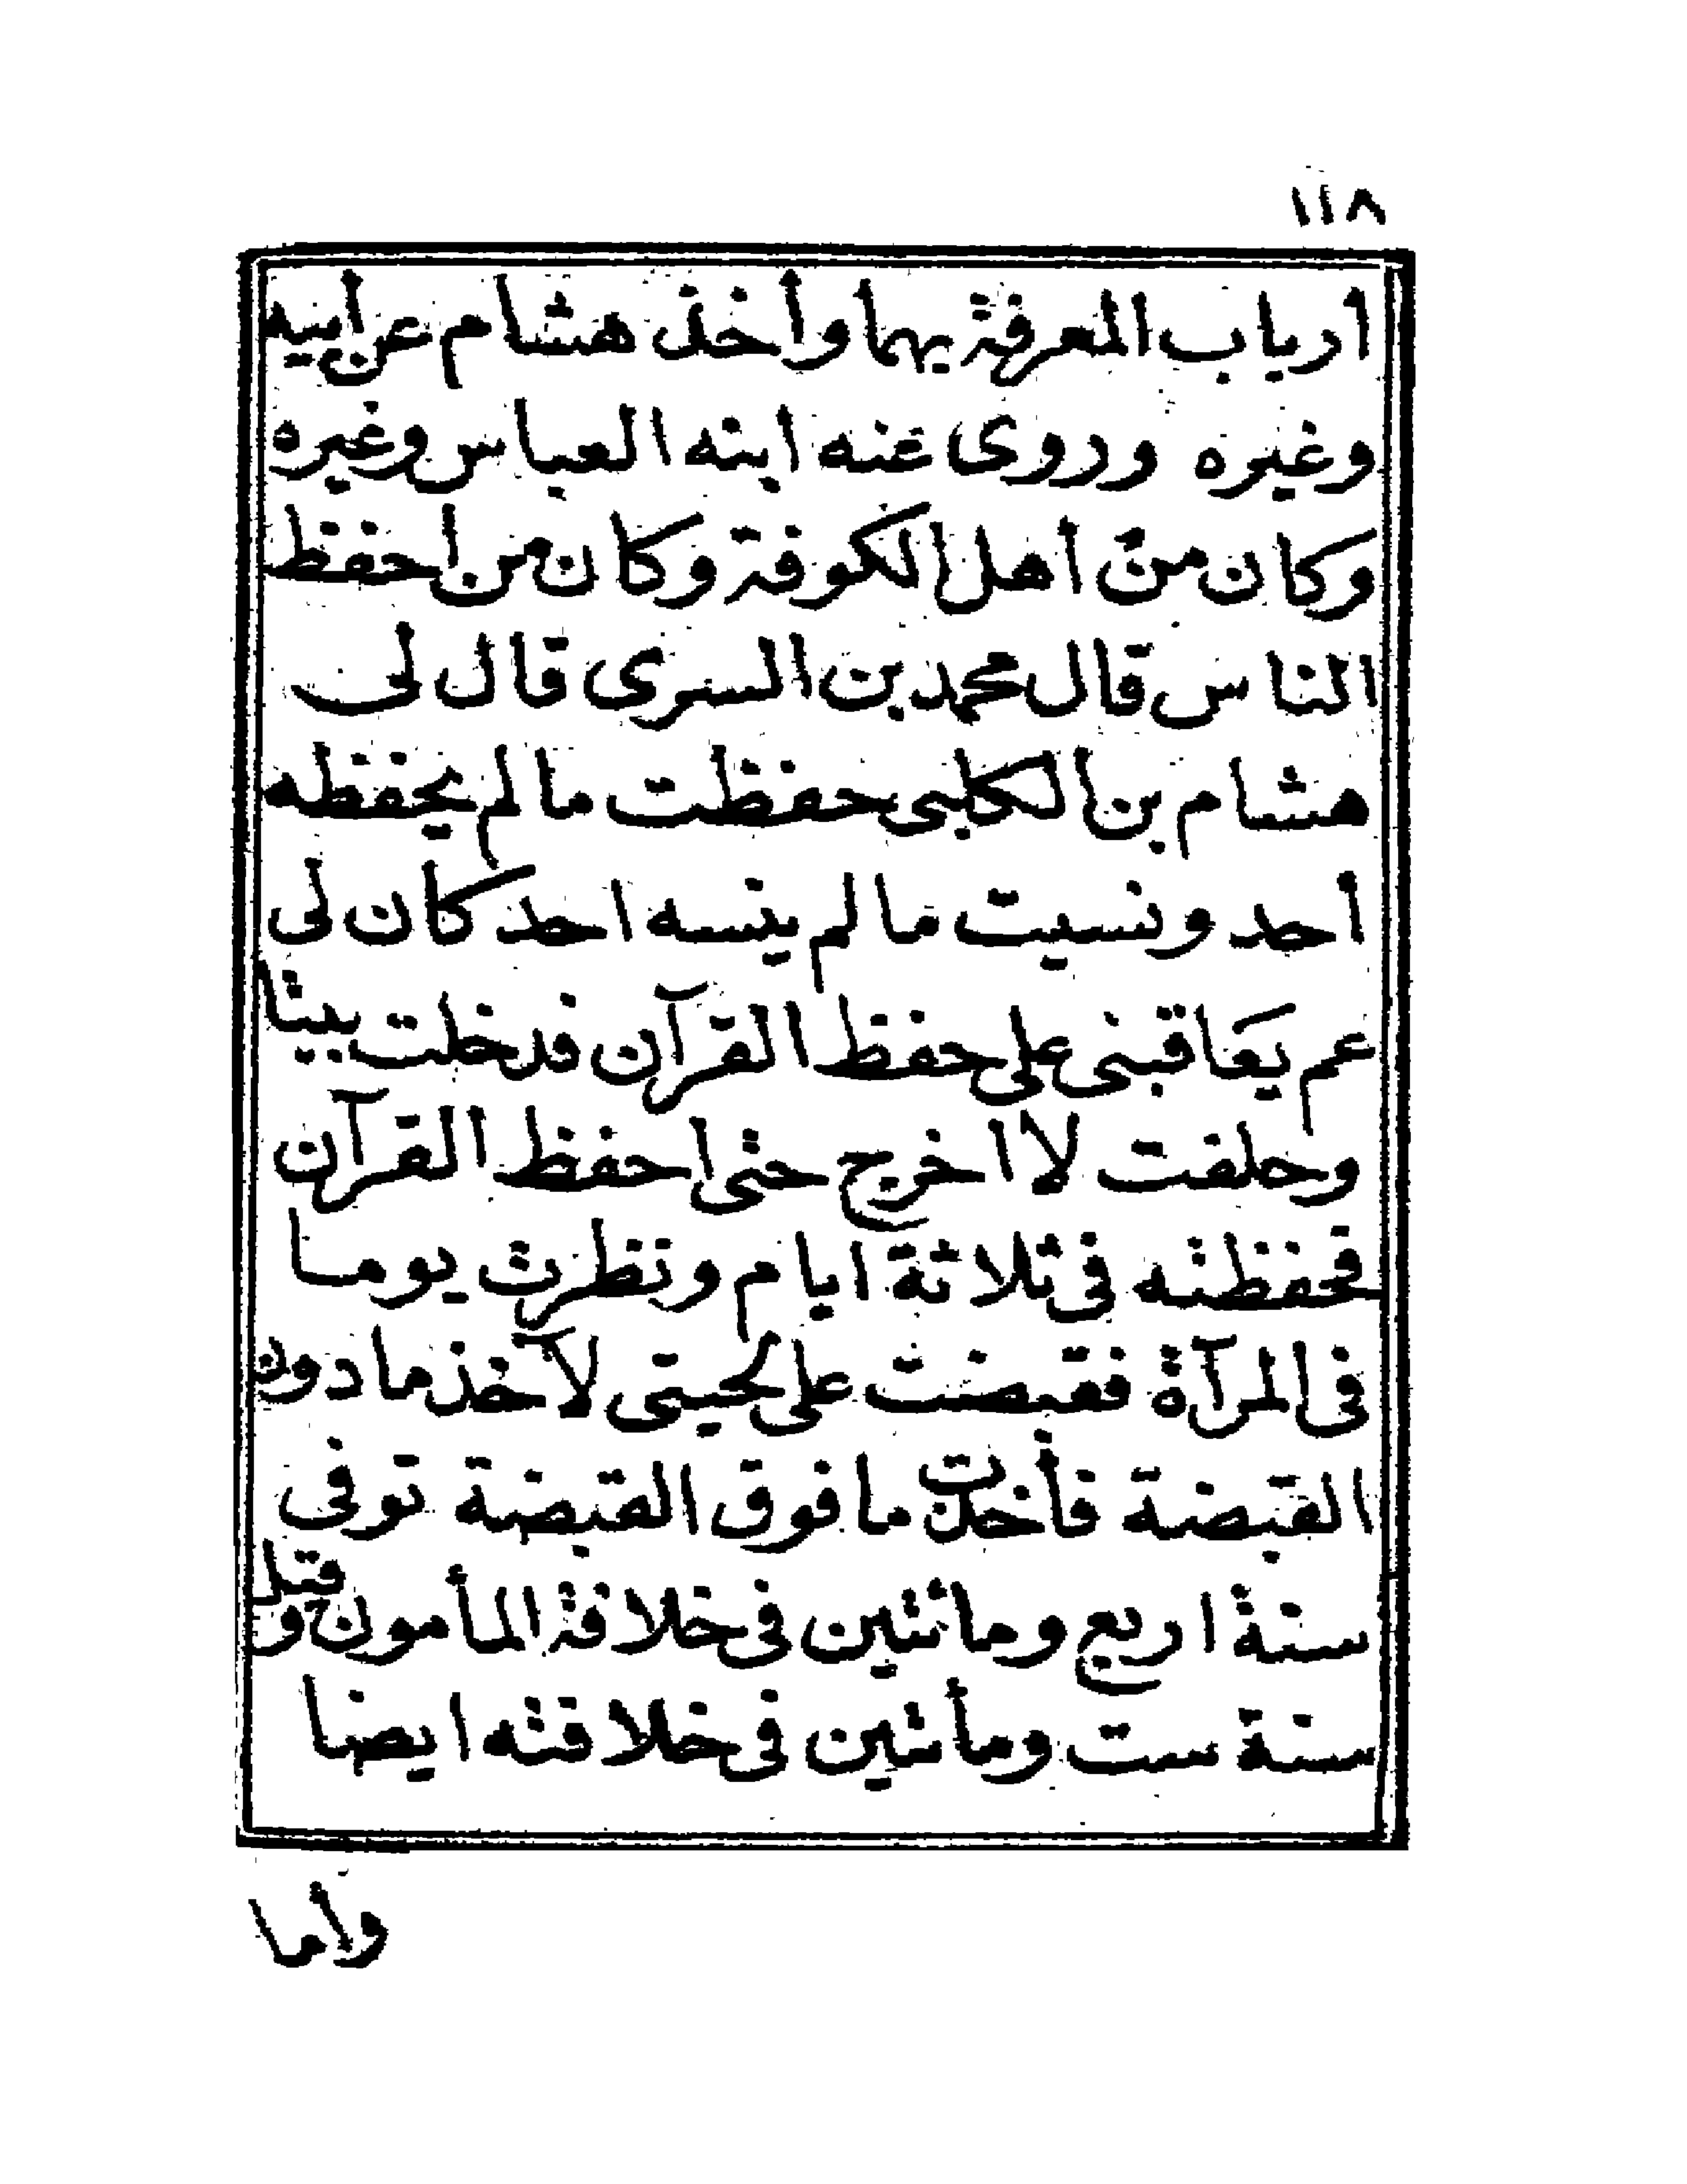 ١١٨
أرباب المعرفة بهما وأخذ هشام عن أبيه
وغيره وروى عنه ابنه العباس وغيره
وكان من أهل الكوفة وكان من احفظ
الناس قال محمد بن السرى قال لى
هشام بن الكلبى حفظت ما لم يحفظه
أحد ونسيت ما لم ينسه احد كان لى
عم يعاقبنى على حفظ القرآن فدخلت بيتا
وحلفت لا اخرج حتى احفظ القرآن
فحفظته فى ثلاثة ايام ونظرت يوما
فى المرآة فقبضت على لحيتى لآخذ ما دون
القبضة فأخذت ما فوق القبضة توفى
سنة اربع ومائتين فى خلافة المأمون وقيل
سنة ست ومأتين فى خلافته ايضا
وأما